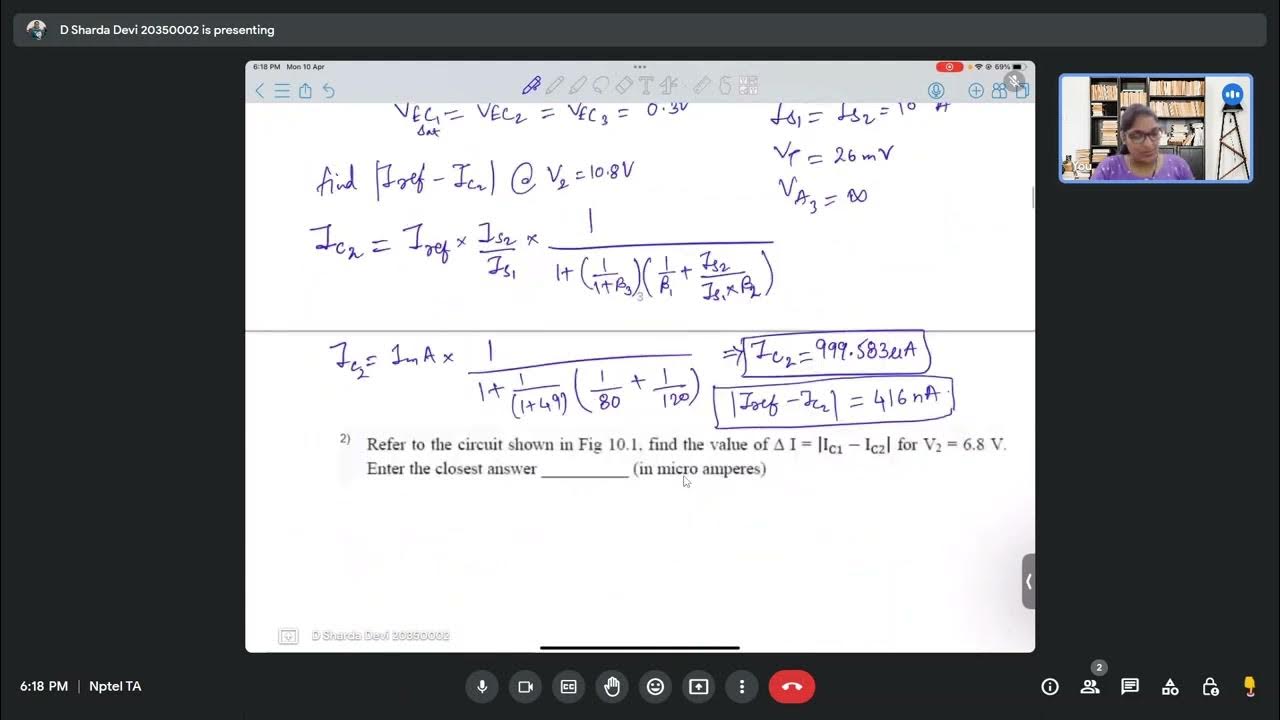 D Sharda Devi 20350002 is presenting
6:18 PM Mon 10 Apr
69%
VEC1 = VEC2 = VEC3 = 0.3V
sat
Is1 = Is2 = 10 A
VT = 26mV
VA3 = ∞
find |Iref - Ic2| @ V2 = 10.8V
Ic2 = Iref × Is2/Is1 × 1/(1+(1/(1+β3))(1/β1 + Is2/(Is1×β2)))
3
Ic2 = 1mA × 1/(1+1/(1+49)(1/80 + 1/120)) ⇒ Ic2 = 999.583uA
|Iref - Ic2| = 416nA
2) Refer to the circuit shown in Fig 10.1, find the value of Δ I = |IC1 − IC2| for V2 = 6.8 V.
Enter the closest answer _________ (in micro amperes)
D Sharda Devi 20350002
You
6:18 PM | Nptel TA
2